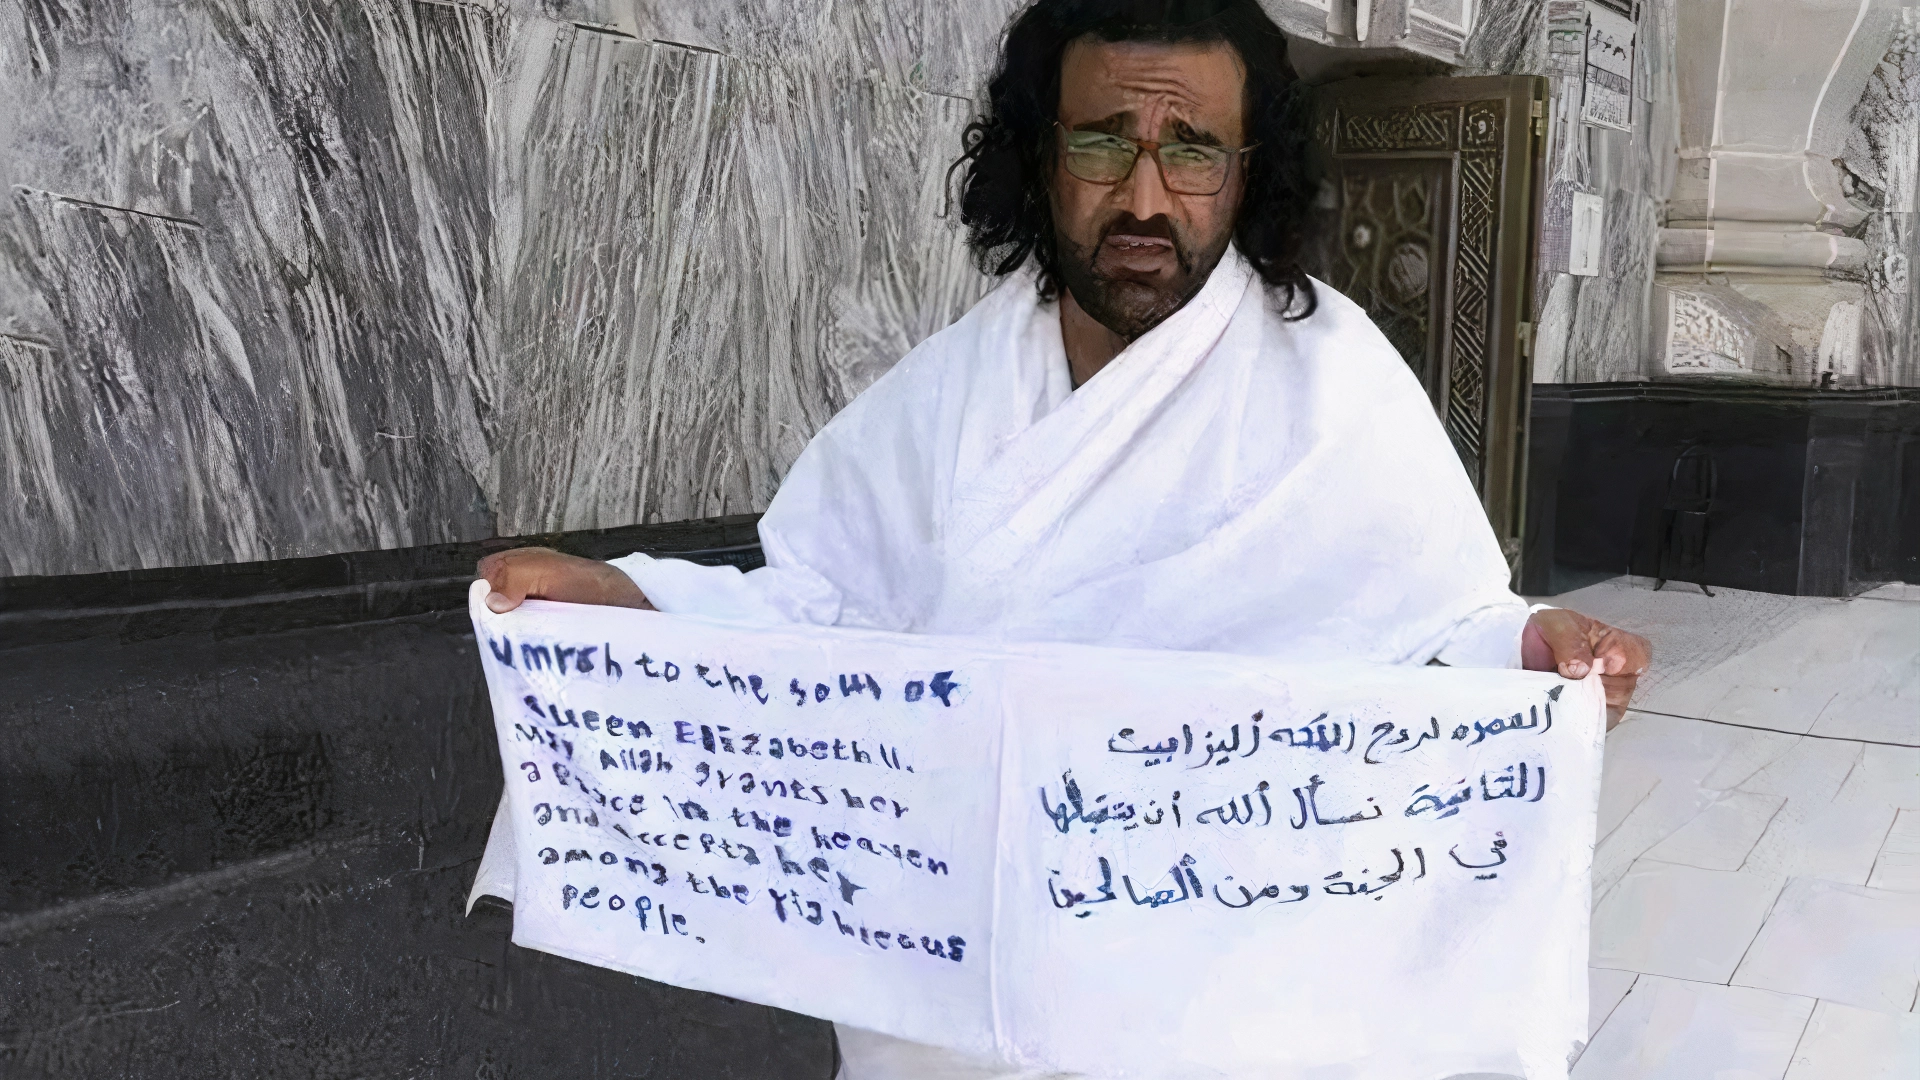 Umrah to the soul of
Queen Elizabeth II.
May Allah grants her
a place in the heaven
and accepta her
among the righteous
people.
ألعمره لروح الملكه أليزابيث
الثانية نسأل ألله أن يتقبلها
في الجنة ومن ألصالحين